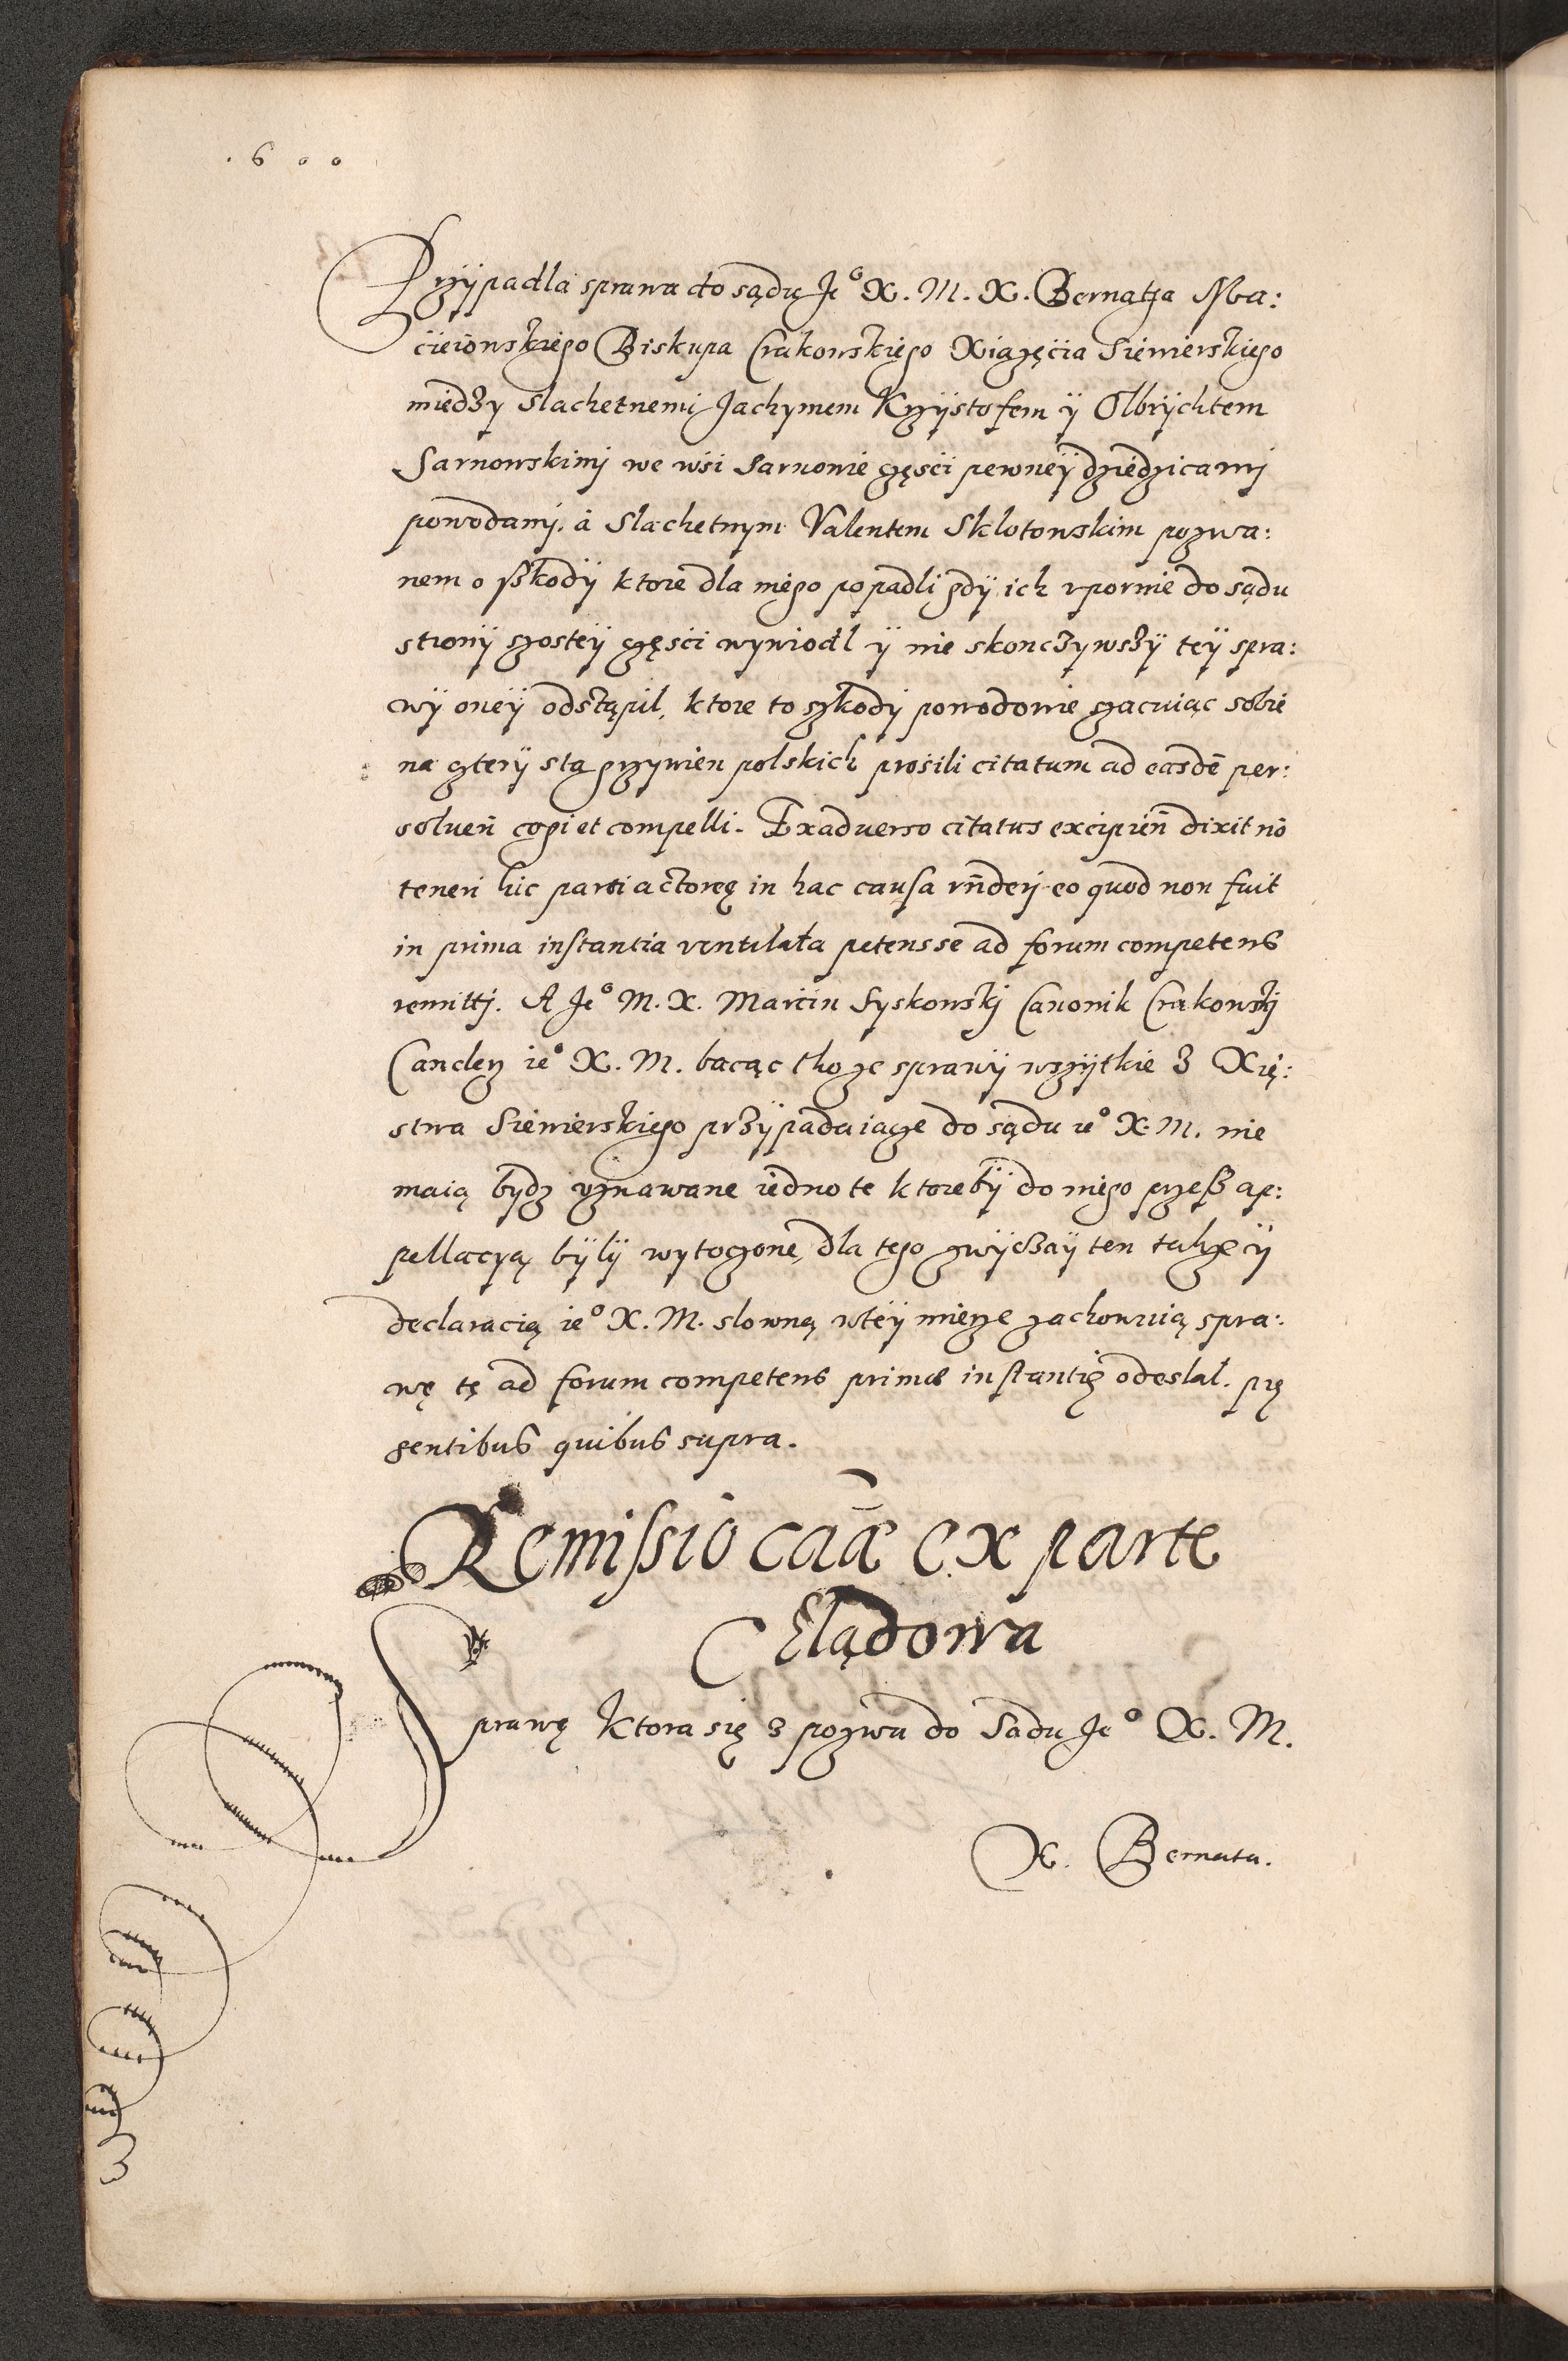 . 6 0 0
Przÿpadla sprawa do sądu Je⁰ X. M. X. Bernatha Ma:
cieiowskiego Biskupa Crakowskiego Xiązęcia Siewierskiego
miedzy slachetnemi Jachymem Krzÿstofem ÿ Olbrÿchtem
Sarnowskimj we wsi Sarnowie częsci pewneÿ dziedzicamj
powodamj. à slachetnym Valentem Sklotowskim pozwa:
nem o szkodÿ ktore dla niego popadli gdÿ ich vpornie do sądu
stronÿ szosteÿ częsci wywiodl ÿ nie skonczywszÿ teÿ spra:
wÿ oneÿ odstąpil, ktore to szkodÿ powodowie szacuiąc sobie
na czterÿ sta grzywien polskich prosili citatum ad easdē per:
soluen̄ cogi et compelli. Ex aduerso citatus excipien̄ dixit nō
teneri hic parti actoreę in hac causa rn̄deri eo quod non fuit
in prima instantia ventilata petens se ad forum competens
remittj. A Je⁰ M. X. Marcin Syskowskj Canonik Crakowskj
Canclerz ie⁰ X. M. bacąc tho ze sprawÿ wszÿtkie z Xię:
stwa Siewierskiego przÿpadaiącze do sądu ie⁰ X. M. nie
maią bydz vznawane iedno te ktorebÿ do niego przesz ap:
pellacyą bÿlÿ wytoczone, dla tego zwÿczaÿ ten takze ÿ
declaracią ie⁰ X. M. slowną wteÿ mierze zachowuią spra:
wę tę ad forum competens primæ instantię odeslal. prę
sentibus quibus supra.
Remissio caæ ex parte
Elądowa
Sprawę ktora się z pozwu do Sadu Je⁰ X. M.
X. Bernata.